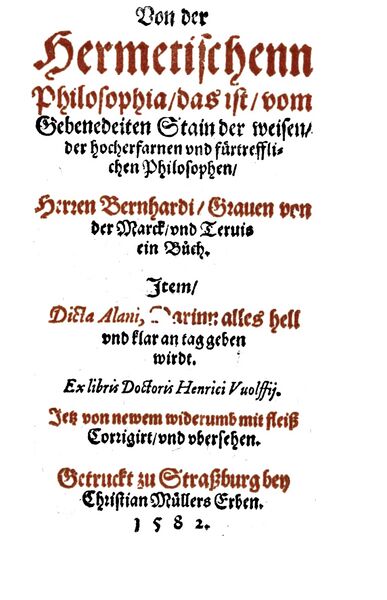 Von der
Hermetischenn
Philosophia/das ist/vom
Gebenedeiten Stain der weisen/
der hocherfarnen vnd fürtreffli-
chen Philosophen/
Herren Bernhardi/Grauen von
der Marck/vnd Teruis
ein Büch.
Item/
Dicta Alani, Darinn alles hell
vnd klar an tag geben
wirdt.
Ex libris Doctoris Henrici Vuolffij.
Jetz von newem widerumb mit fleiß
Corrigirt/vnd vbersehen.
Getruckt zu Straßburg bey
Christian Müllers Erben.
1 5 8 2.